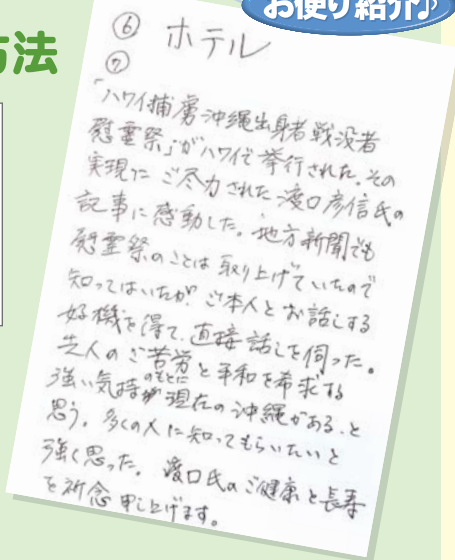 お便り紹介♪
方法
⑥ ホテル
⑦
「ハワイ捕虜沖縄出身者戦没者
慰霊祭」がハワイで挙行された。その
実現にご尽力された渡口彦信氏の
記事に感動した。地方新聞でも
慰霊祭のことは取り上げていたので
知ってはいたが、ご本人とお話しする
好機を得て、直接話しを伺った。
先人のご苦労と平和を希求する
強い気持のもとに現在の沖縄がある、と
思う。多くの人に知ってもらいたいと
強く思った。渡口氏のご健康と長寿
を祈念申し上げます。